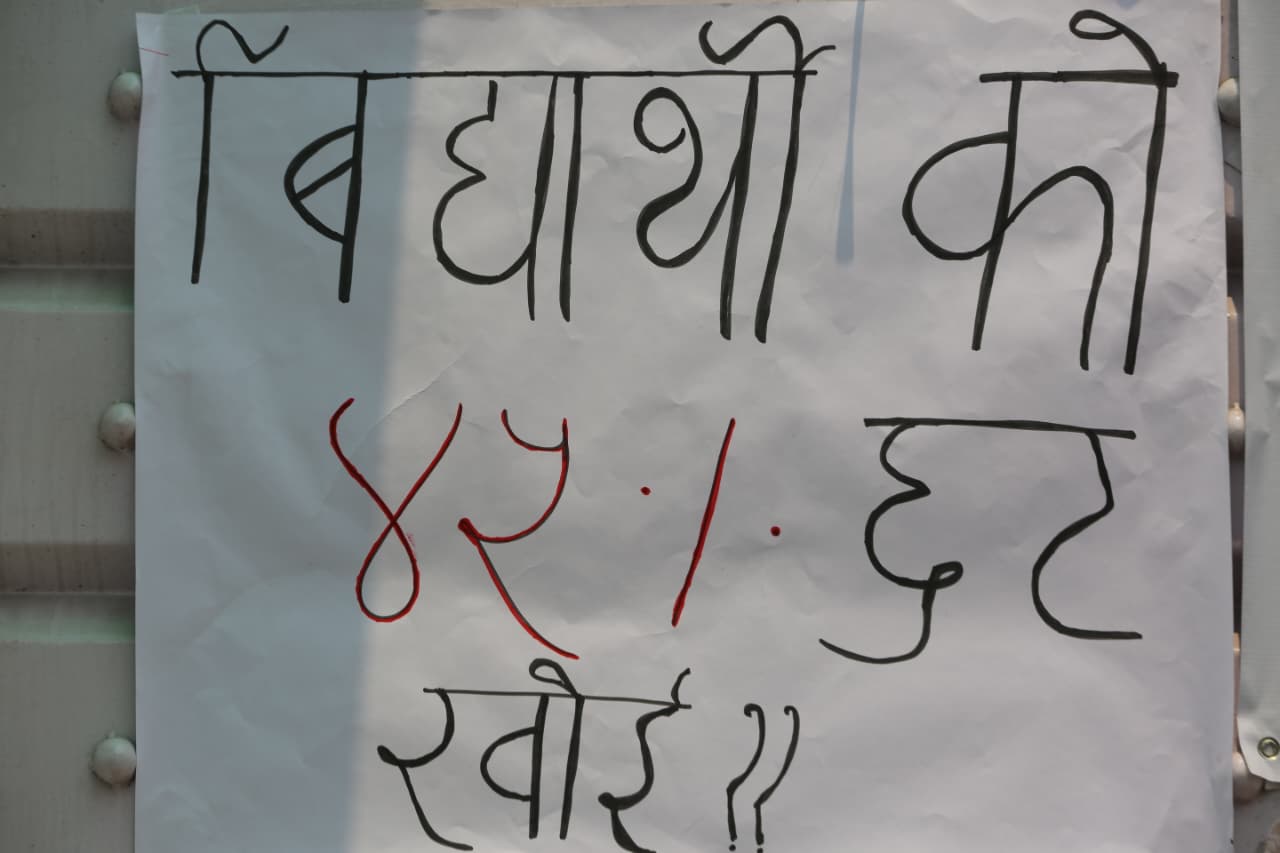 बिद्यार्थी को
४५ ./. छुट
खोई !!